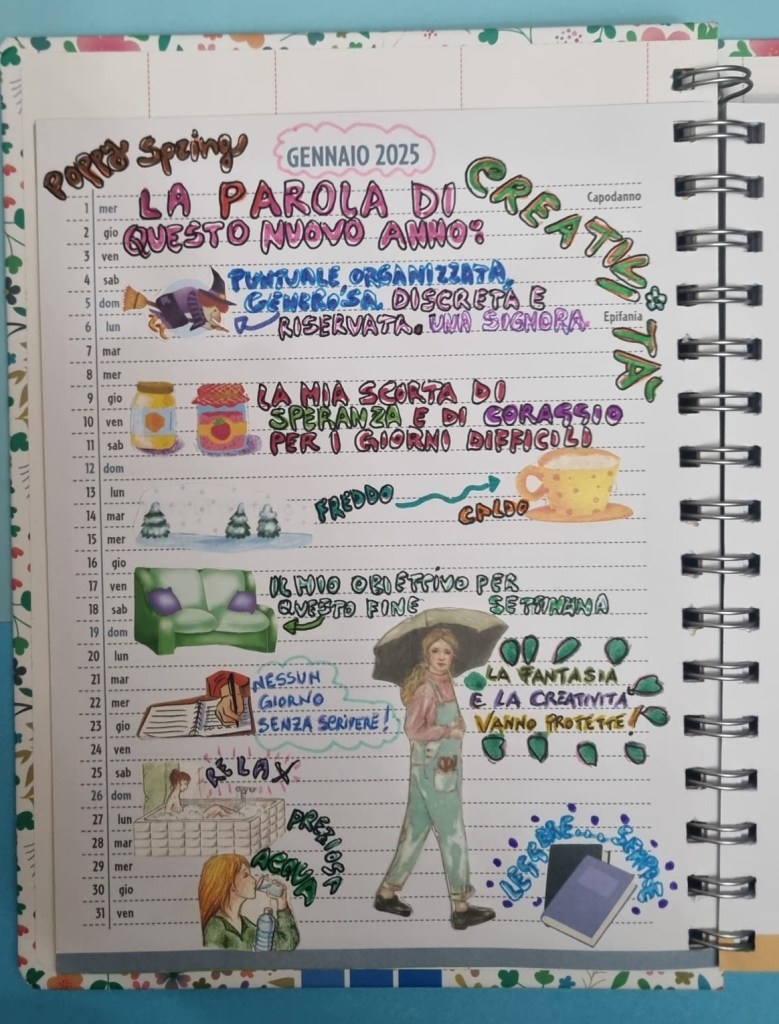 POPPY Spring
GENNAIO 2025
CREATIVITÀ
1 mer Capodanno
LA PAROLA DI
2 gio
QUESTO NUOVO ANNO:
3 ven
4 sab
PUNTUALE ORGANIZZATA,
5 dom
GENEROSA DISCRETA E
6 lun Epifania
RISERVATA. UNA SIGNORA
7 mar
8 mer
9 gio
LA MIA SCORTA DI
10 ven
SPERANZA E DI CORAGGIO
11 sab
PER I GIORNI DIFFICILI
12 dom
13 lun
FREDDO
14 mar
CALDO
15 mer
16 gio
17 ven
IL MIO OBIETTIVO PER
18 sab
QUESTO FINE SETTIMANA
19 dom
20 lun
21 mar
NESSUN
LA FANTASIA
22 mer
GIORNO
E LA CREATIVITÀ
23 gio
SENZA SCRIVERE!
VANNO PROTETTE!
24 ven
25 sab
RELAX
26 dom
27 lun
28 mar
PREZIOSA
ACQUA
29 mer
LEGGERE... SEMPRE
30 gio
31 ven